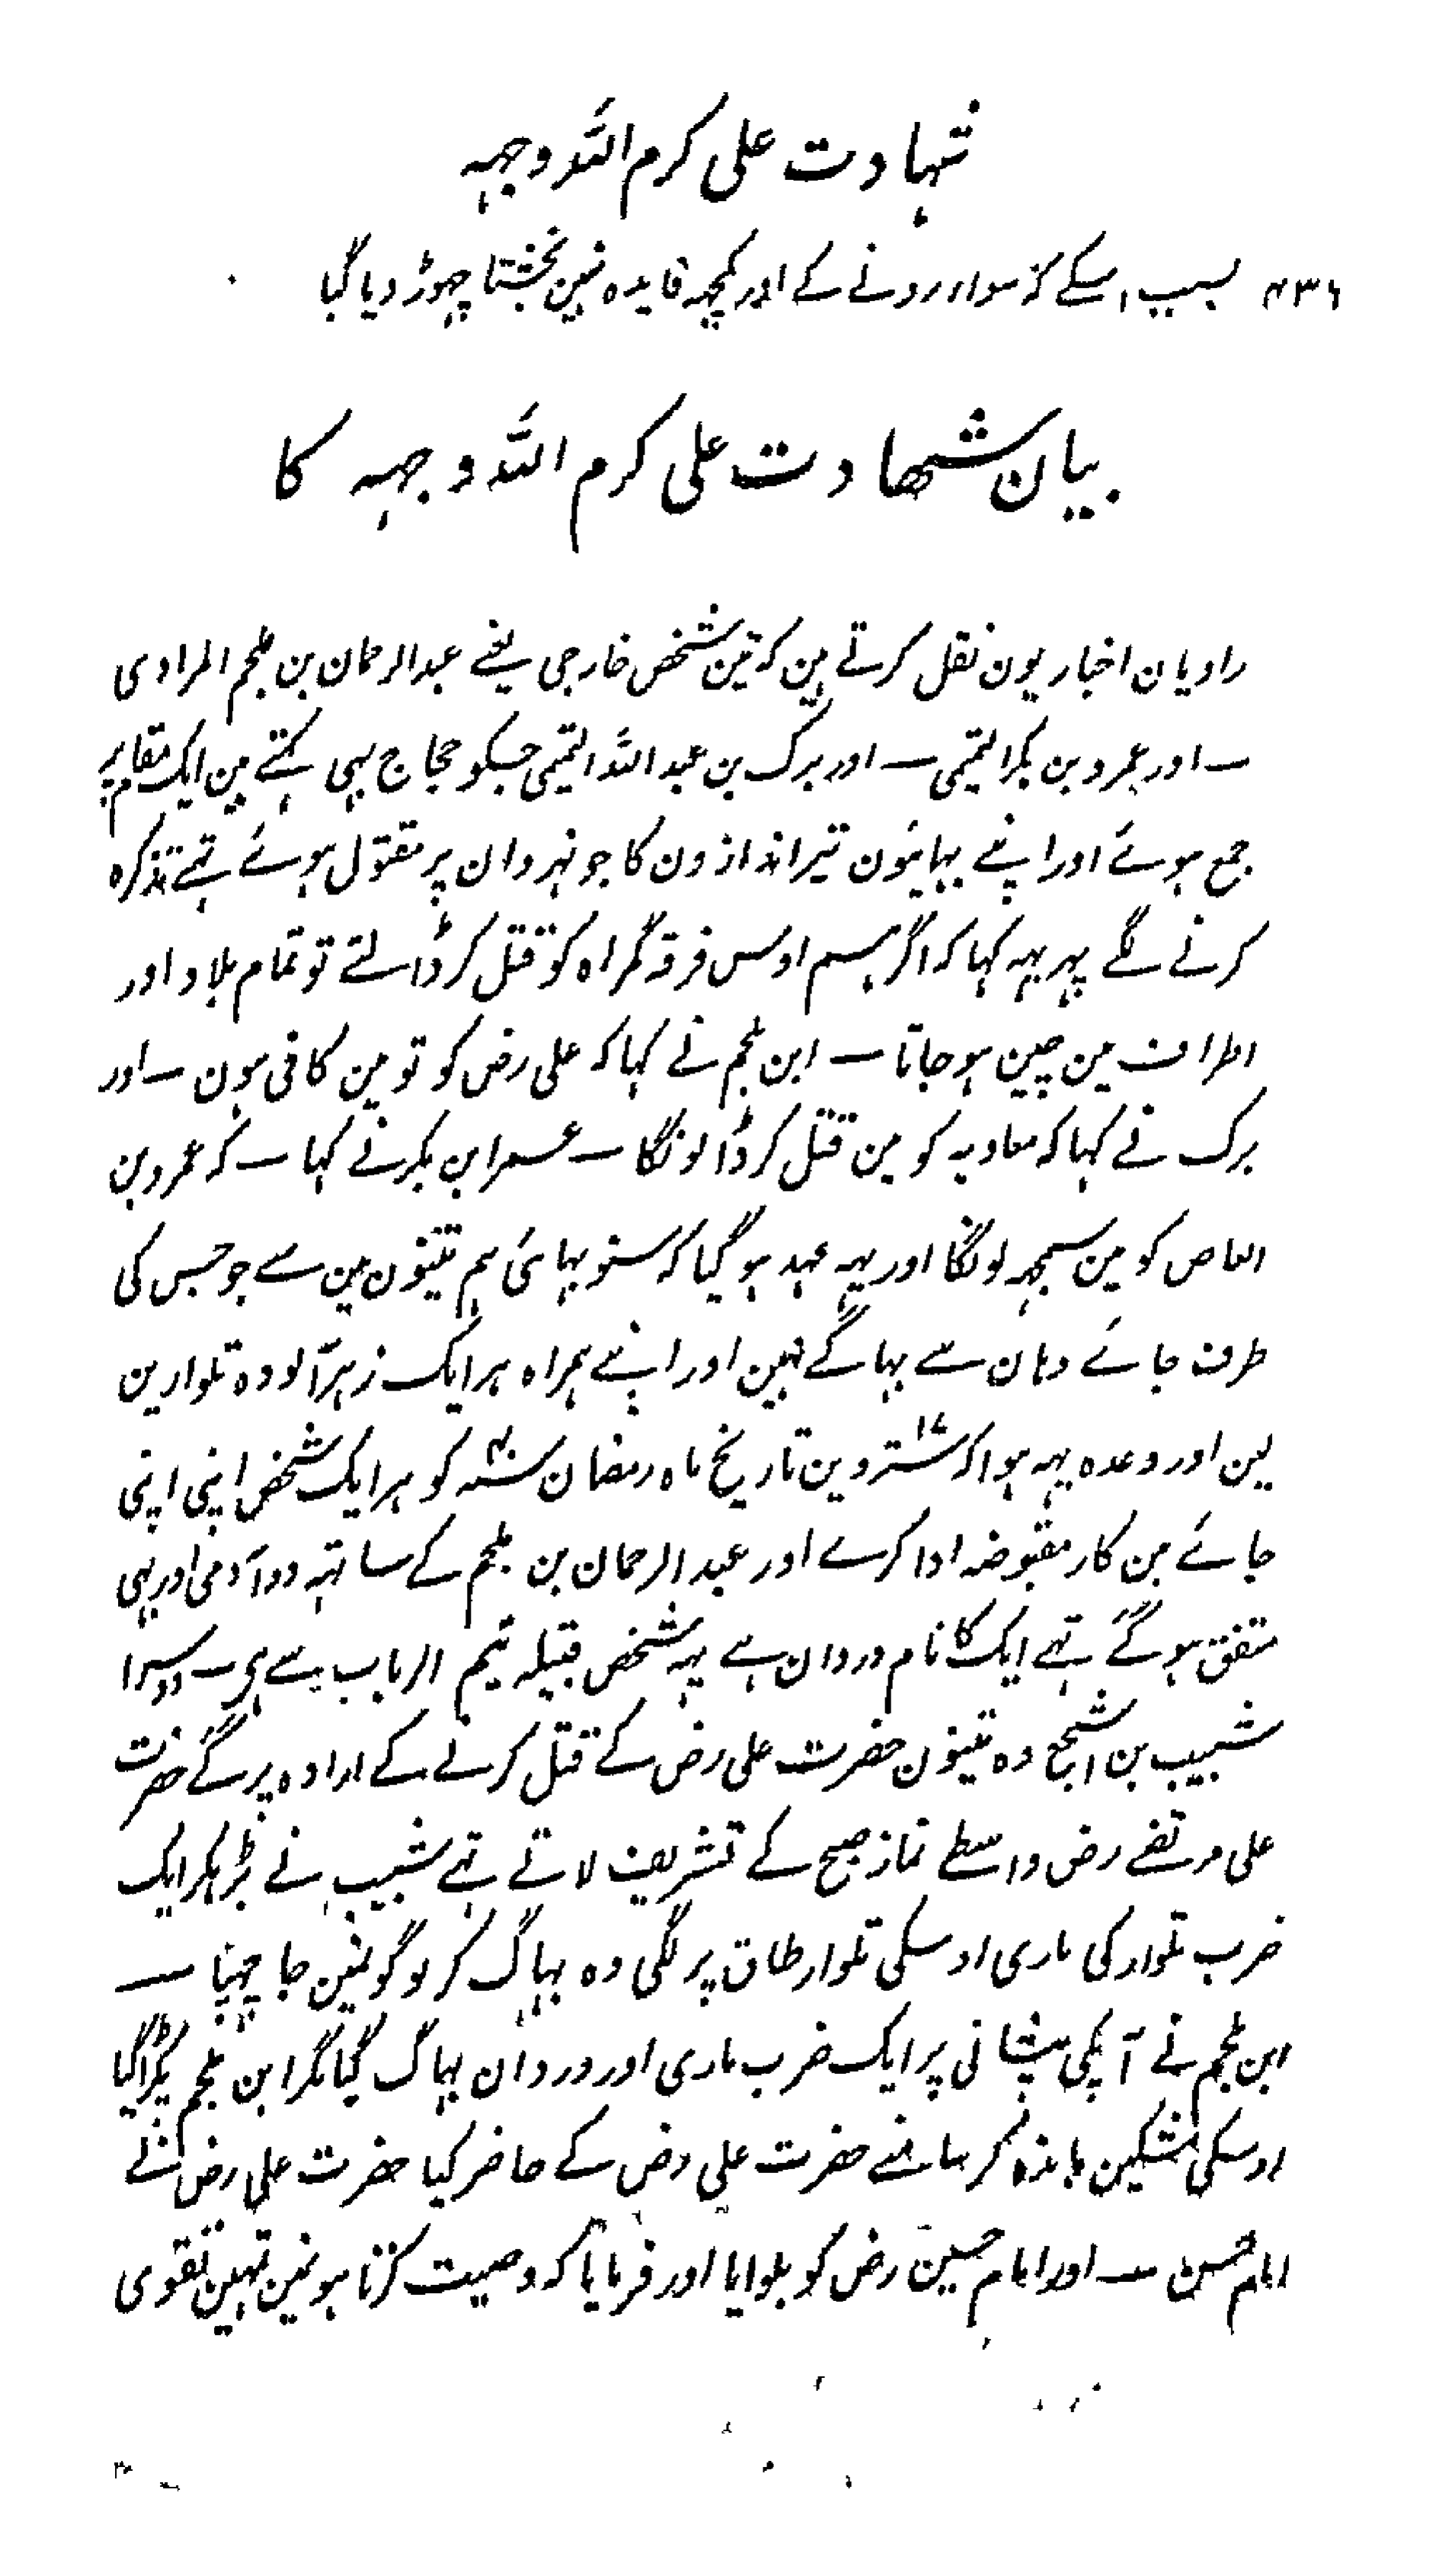 شہادت علی کرم اللہ وجہہ
۴۳۶ بسبب اسکے کہ سواء رونے کے اور کچھہ فایدہ نہین بخشتا چھوڑ دیا گیا
بیان شھادت علی کرم اللہ وجہہ کا
راویان اخبار یون نقل کرتے ہین کہ تین شخص خارجی یعنے عبدالرحمان بن ملجم المرادی
ــ اور عمرو بن بکر التمیمی ــ اور برک بن عبد اللہ التمیمی جسکو حجاج بہی کہتے ہین ایک مقام پر
جمع ہوئے اور اپنے بہائیون تیراندازون کا جو نہروان پر مقتول ہوئے تہے تذکرہ
کرنے لگے پہر یہہ کہا کہ اگر ہم اوس فرقہ گمراہ کو قتل کر ڈالتے تو تمام بلاد اور
اطراف مین چین ہو جاتا ــ ابن ملجم نے کہا کہ علی رض کو تو مین کافی ہون ــ اور
برک نے کہا کہ معاویہ کو مین قتل کر ڈالونگا ــ عمر ابن بکر نے کہا ــ کہ عمرو بن
العاص کو مین سمجہہ لونگا اور یہہ عہد ہو گیا کہ سنو بہائی ہم تینون مین سے جو جس کی
طرف جائے وہان سے بہاگے نہین اور اپنے ہمراہ ہر ایک زہر آلودہ تلوارین
لین اور وعدہ یہہ ہوا کہ ۱۷ سترہوین تاریخ ماہ رمضان سنہ ۴۰ کو ہر ایک شخص اپنی اپنی
جائے مین کار مقبوضہ ادا کرے اور عبد الرحمان بن ملجم کے ساتہہ دو آدمی اور بہی
متفق ہو گئے تہے ایک کا نام وردان ہے یہہ شخص قبیلہ تیم الرباب سے ہی ــ دوسرا
شبیب بن اشجع وہ تینون حضرت علی رض کے قتل کرنے کے ارادہ پر گئے حضرت
علی مرتضے رض واسطے نماز صبح کے تشریف لاتے تہے شبیب نے بڑہکر ایک
ضرب تلوار کی ماری اوسکی تلوار طاق پر لگی وہ بہاگ کر لوگونمین جا چہپا ــ
ابن ملجم نے آپکی پیشانی پر ایک ضرب ماری اور وردان بہاگ گیا مگر ابن ملجم پکڑا گیا
اوسکی مشکین باندہ کر سامنے حضرت علی رض کے حاضر کیا حضرت علی رض نے
امام حسن ــ اور امام حسین رض کو بلوایا اور فرمایا کہ وصیت کرتا ہونمین تمہین تقوی